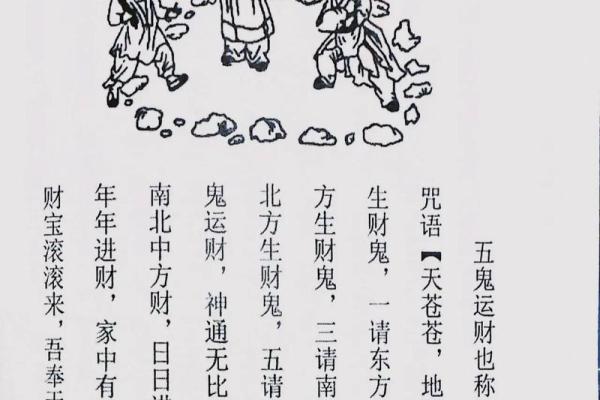 五鬼运财也称
咒语【天苍苍，地
生财鬼，一请东方
方生财鬼，三请南
北方生财鬼，五请
鬼运财，神通无比
南北中方财，日日进
年年进财，家中有
财宝滚滚来，吾奉